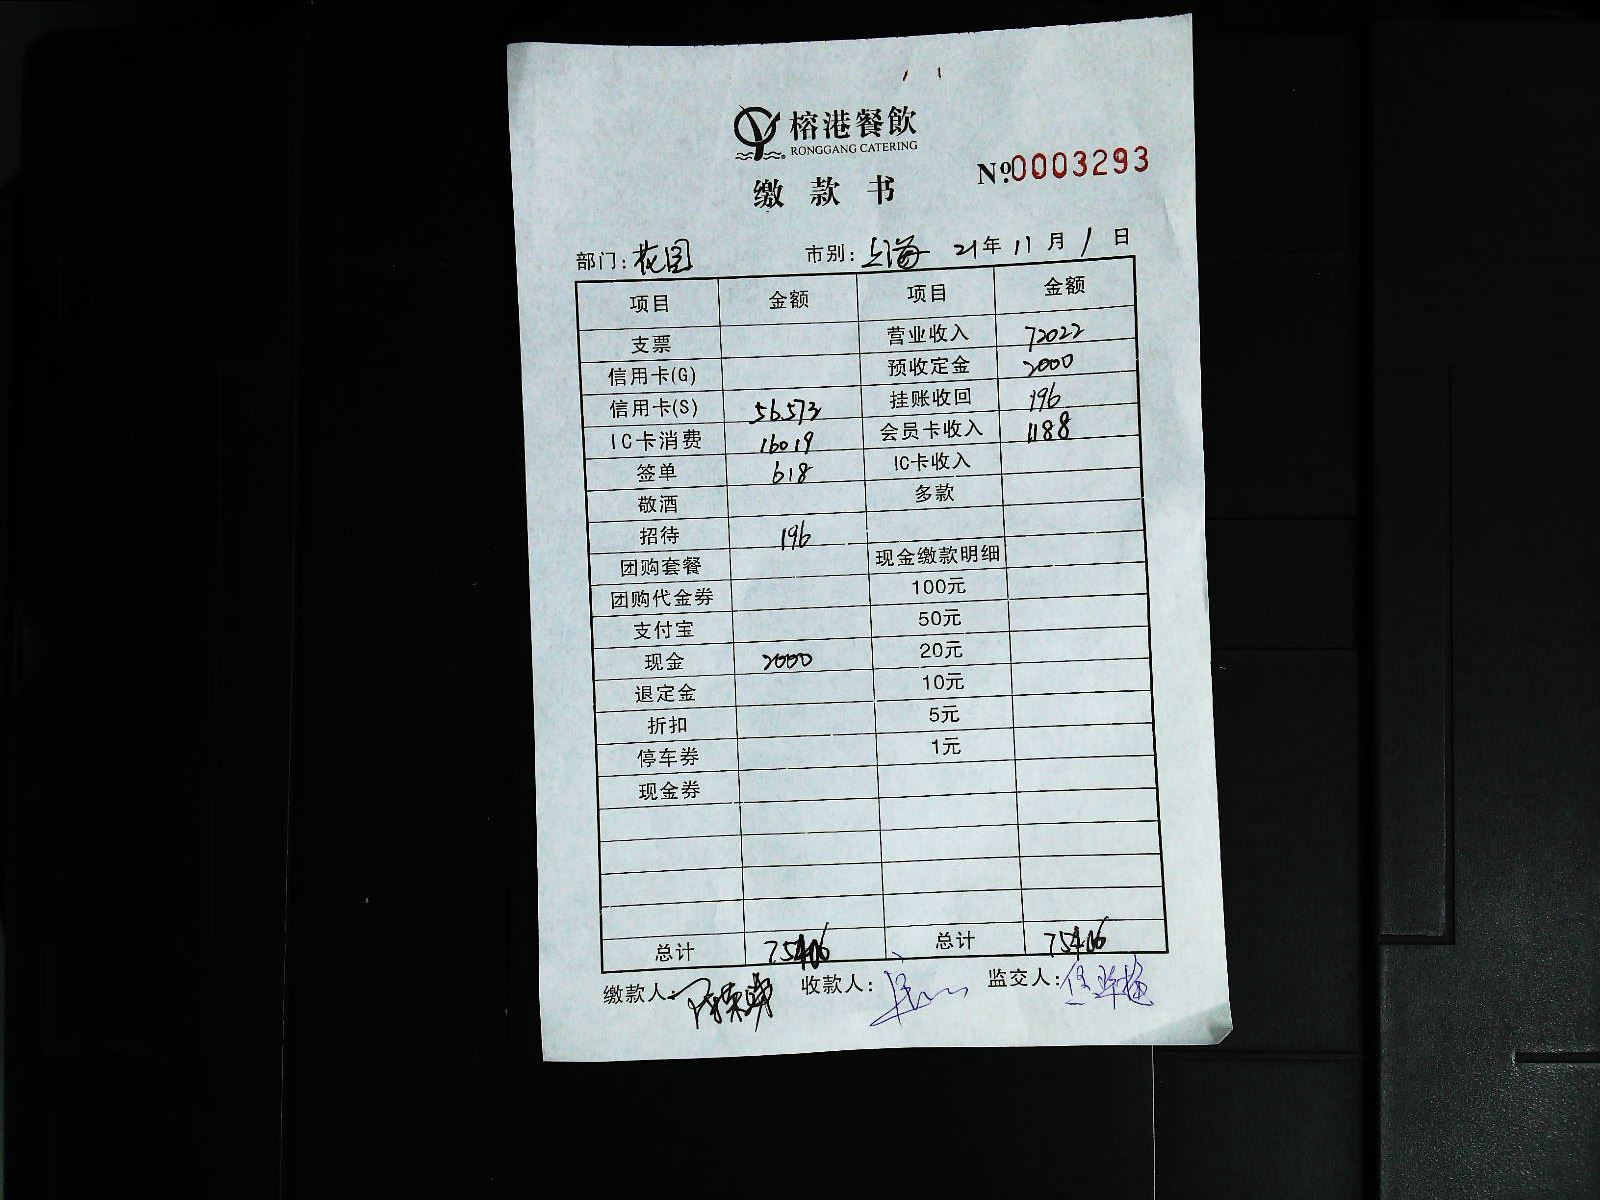 榕港餐飲
RONGGANG CATERING
缴款书
Nº 0003293
部门: 花园 市别: 上海 21年 11月 1日
项目 金额 项目 金额
支票 营业收入 72022
信用卡(G) 预收定金 2000
信用卡(S) 56573 挂账收回 196
IC卡消费 16019 会员卡收入 1188
签单 618 IC卡收入
敬酒 多款
招待 196
团购套餐 现金缴款明细
团购代金券 100元
支付宝 50元
现金 2000 20元
退定金 10元
折扣 5元
停车券 1元
现金券
总计 75406 总计 75406
缴款人: 收款人: 监交人: